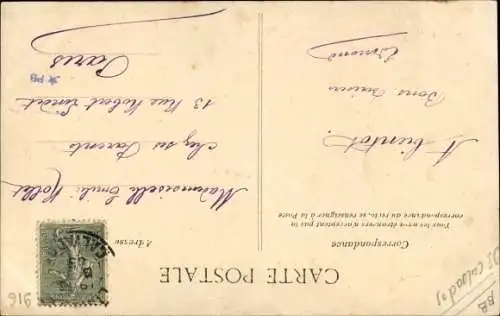 CARTE POSTALE
Correspondance
Tous les pays étrangers n'acceptent pas la
correspondance au recto, se renseigner à la Poste
A bientot.
Bons baisers
Edmond
Adresse
Mademoiselle Emilie Mollet
chez ses Parents
13 Rue Robert Lindet
Paris
PB
CALVADOS
916
BB